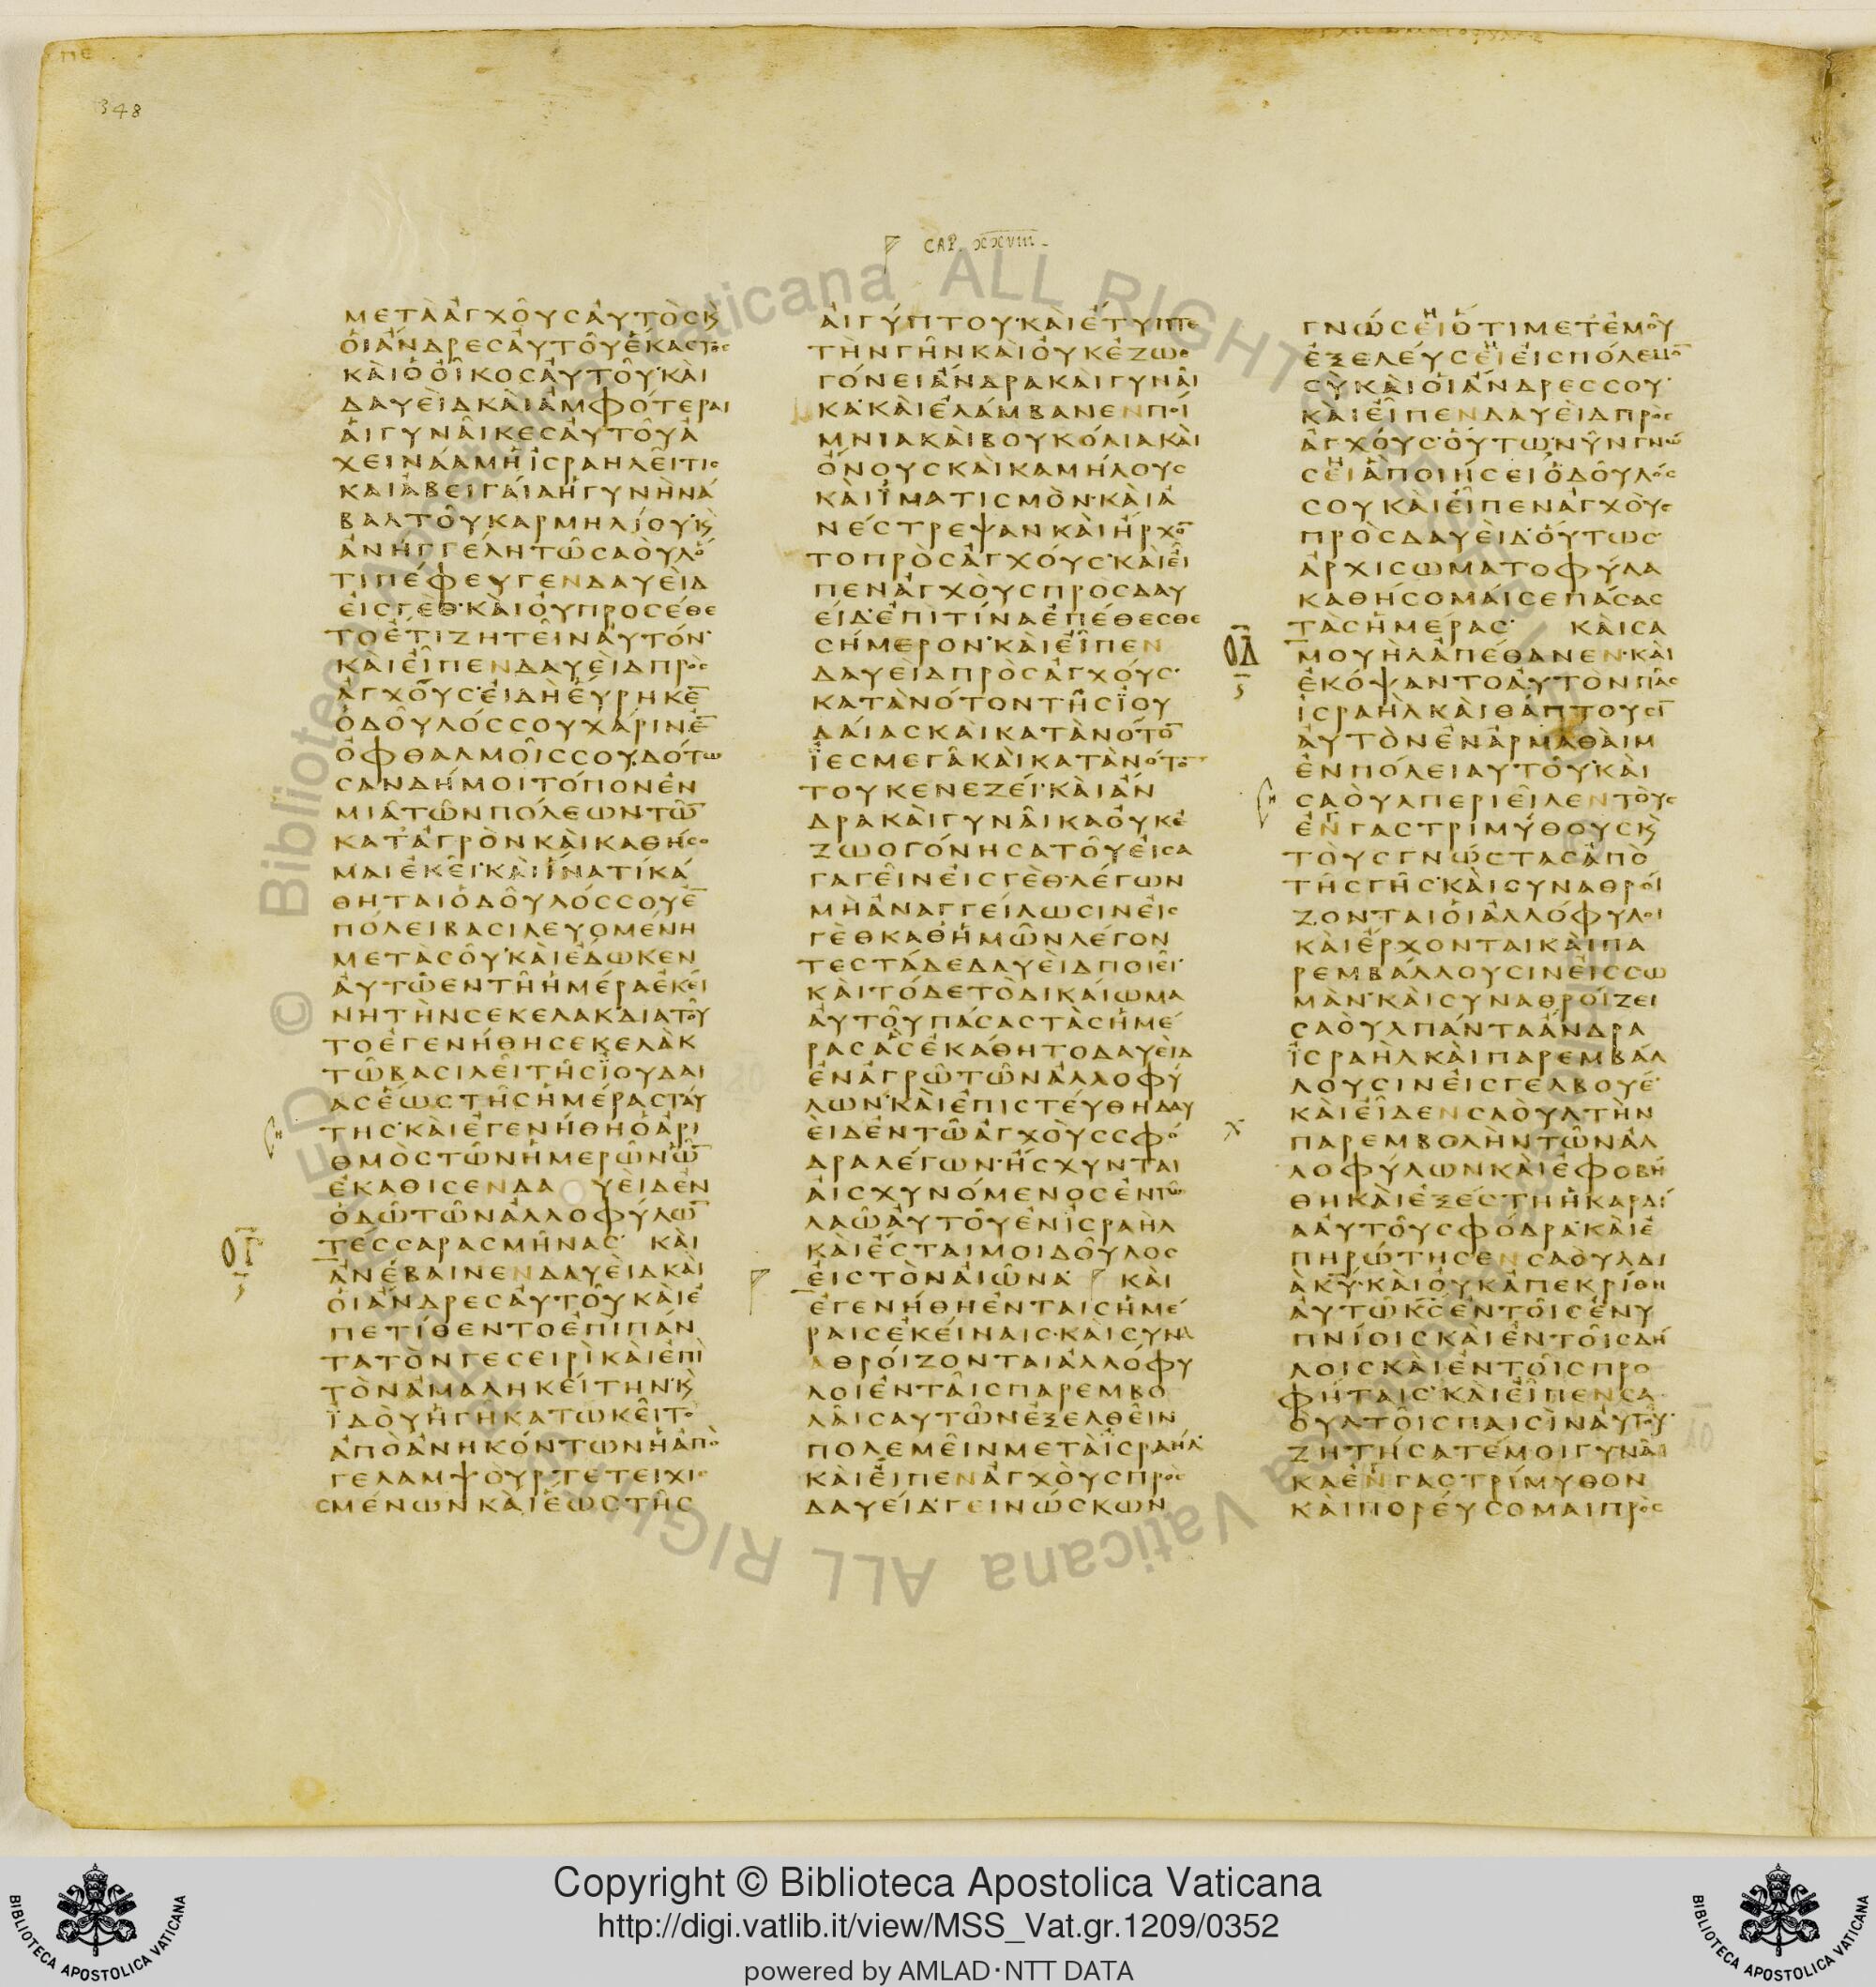 ΠΕ
348
CAP. XXVIII
ΜΕΤΑΑΓΧΟΥϹΑΥΤΟϹΚ̀
ΟΙΑΝΔΡΕϹΑΥΤΟΥΕΚΑϹΤΟϹ
ΚΑΙΟΟΙΚΟϹΑΥΤΟΥ·ΚΑΙ
ΔΑΥΕΙΔΚΑΙΑΜΦΟΤΕΡΑΙ
ΑΙΓΥΝΑΙΚΕϹΑΥΤΟΥΑ
ΧΕΙΝΑΑΜΗΙϹΡΑΗΛΕΙΤΙϹ
ΚΑΙΑΒΕΙΓΑΙΑΗΓΥΝΗΝΑ
ΒΑΛΤΟΥΚΑΡΜΗΛΙΟΥ·Κ̀
ΑΝΗΓΓΕΛΗΤΩϹΑΟΥΛΟ
ΤΙΠΕΦΕΥΓΕΝΔΑΥΕΙΔ
ΕΙϹΓΕΘ·ΚΑΙΟΥΠΡΟϹΕΘΕ
ΤΟΕΤΙΖΗΤΕΙΝΑΥΤΟΝ·
ΚΑΙΕΙΠΕΝΔΑΥΕΙΔΠΡΟϹ
ΑΓΧΟΥϹ·ΕΙΔΗΕΥΡΗΚΕ̅
ΟΔΟΥΛΟϹϹΟΥΧΑΡΙΝΕ̅
ΟΦΘΑΛΜΟΙϹϹΟΥ,ΔΟΤΩ
ϹΑΝΔΗΜΟΙΤΟΠΟΝΕΝ
ΜΙΑΤΩΝΠΟΛΕΩΝΤΩ̅
ΚΑΤΑΓΡΟΝΚΑΙΚΑΘΗϹΟ
ΜΑΙΕΚΕΙ·ΚΑΙΙΝΑΤΙΚΑ
ΘΗΤΑΙΟΔΟΥΛΟϹϹΟΥΕ̅
ΠΟΛΕΙΒΑϹΙΛΕΥΟΜΕΝΗ
ΜΕΤΑϹΟΥ·ΚΑΙΕΔΩΚΕΝ
ΑΥΤΩΕΝΤΗΗΜΕΡΑΕΚΕΙ
ΝΗΤΗΝϹΕΚΕΛΑΚ·ΔΙΑΤΟΥ
ΤΟΕΓΕΝΗΘΗϹΕΚΕΛΑΚ
ΤΩΒΑϹΙΛΕΙΤΗϹΙΟΥΔΑΙ
ΑϹΕΩϹΤΗϹΗΜΕΡΑϹΤΑΥ
ΤΗϹ·ΚΑΙΕΓΕΝΗΘΗΟΑΡΙ
ΘΜΟϹΤΩΝΗΜΕΡΩΝΩ̅
ΕΚΑΘΙϹΕΝΔΑΥΕΙΔΕΝ
ΟΔΩΤΩΝΑΛΛΟΦΥΛΩ̅
ΤΕϹϹΑΡΑϹΜΗΝΑϹ· ΚΑΙ
ΟΓ
ΑΝΕΒΑΙΝΕΝΔΑΥΕΙΔΚΑΙ
ΟΙΑΝΔΡΕϹΑΥΤΟΥΚΑΙΕ
ΠΕΤΙΘΕΝΤΟΕΠΙΠΑΝ
ΤΑΤΟΝΓΕϹΕΙΡΙΚΑΙΕΠΙ
ΤΟΝΑΜΑΛΗΚΕΙΤΗΝ·Κ̀
ΙΔΟΥΗΓΗΚΑΤΩΚΕΙΤΟ
ΑΠΟΑΝΗΚΟΝΤΩΝΗΑΠΟ
ΓΕΛΑΜΨΟΥΡ·ΤΕΤΕΙΧΙϹ
ϹΜΕΝΩΝΚΑΙΕΩϹΤΗϹ
ΑΙΓΥΠΤΟΥ·ΚΑΙΕΤΥΠΤΕ
ΤΗΝΓΗΝΚΑΙΟΥΚΕΖΩΟ
ΓΟΝΕΙΑΝΔΡΑΚΑΙΓΥΝΑΙ
ΚΑ·ΚΑΙΕΛΑΜΒΑΝΕΝΠΟΙ
ΜΝΙΑΚΑΙΒΟΥΚΟΛΙΑΚΑΙ
ΟΝΟΥϹΚΑΙΚΑΜΗΛΟΥϹ
ΚΑΙΙΜΑΤΙϹΜΟΝ·ΚΑΙΑ
ΝΕϹΤΡΕΨΑΝΚΑΙΗΡΧΟ̅
ΤΟΠΡΟϹΑΓΧΟΥϹ·ΚΑΙΕΙ
ΠΕΝΑΓΧΟΥϹΠΡΟϹΔΑΥ
ΕΙΔ·ΕΠΙΤΙΝΑΕΠΕΘΕϹΘΕ
ϹΗΜΕΡΟΝ·ΚΑΙΕΙΠΕΝ
ΔΑΥΕΙΔΠΡΟϹΑΓΧΟΥϹ·
ΚΑΤΑΝΟΤΟΝΤΗϹΙΟΥ
ΔΑΙΑϹΚΑΙΚΑΤΑΝΟΤΟ̅
ΙΕϹΜΕΓΑΚΑΙΚΑΤΑΝΟΤΟ̅
ΤΟΥΚΕΝΕΖΕΙ·ΚΑΙΑΝ
ΔΡΑΚΑΙΓΥΝΑΙΚΑΟΥΚΕ
ΖΩΟΓΟΝΗϹΑΤΟΥΕΙϹΑ
ΓΑΓΕΙΝΕΙϹΓΕΘ·ΛΕΓΩΝ
ΜΗΑΝΑΓΓΕΙΛΩϹΙΝΕΙϹ
ΓΕΘΚΑΘΗΜΩΝΛΕΓΟΝ
ΤΕϹΤΑΔΕΔΑΥΕΙΔΠΟΙΕΙ·
ΚΑΙΤΟΔΕΤΟΔΙΚΑΙΩΜΑ
ΑΥΤΟΥΠΑϹΑϹΤΑϹΗΜΕ
ΡΑϹΑϹΕΚΑΘΗΤΟΔΑΥΕΙΔ
ΕΝΑΓΡΩΤΩΝΑΛΛΟΦΥ
ΛΩΝ·ΚΑΙΕΠΙϹΤΕΥΘΗΔΑΥ
ΕΙΔΕΝΤΩΑΓΧΟΥϹϹΦΟ
ΔΡΑΛΕΓΩΝ·ΗϹΧΥΝΤΑΙ
ΑΙϹΧΥΝΟΜΕΝΟϹΕΝΤΩ
ΛΑΩΑΥΤΟΥΕΝΙϹΡΑΗΛ
ΚΑΙΕϹΤΑΙΜΟΙΔΟΥΛΟϹ
ΕΙϹΤΟΝΑΙΩΝΑ· ΚΑΙ
ΕΓΕΝΗΘΗΕΝΤΑΙϹΗΜΕ
ΡΑΙϹΕΚΕΙΝΑΙϹ·ΚΑΙϹΥΝΑ
ΑΘΡΟΙΖΟΝΤΑΙΑΛΛΟΦΥ
ΛΟΙΕΝΤΑΙϹΠΑΡΕΜΒΟ
ΛΑΙϹΑΥΤΩΝΕΞΕΛΘΕΙΝ
ΠΟΛΕΜΕΙΝΜΕΤΑΙϹΡΑΗΛ·
ΚΑΙΕΙΠΕΝΑΓΧΟΥϹΠΡΟϹ
ΔΑΥΕΙΔ·ΓΕΙΝΩϹΚΩΝ
ΓΝΩϹΕΙΟΤΙΜΕΤΕΜΟΥ
ΕΞΕΛΕΥϹΕΙΕΙϹΠΟΛΕΜΟ̅
ϹΥΚΑΙΟΙΑΝΔΡΕϹϹΟΥ·
ΚΑΙΕΙΠΕΝΔΑΥΕΙΔΠΡΟϹ
ΑΓΧΟΥϹ·ΟΥΤΩΝΥΝΓΝΩ
ϹΕΙΑΠΟΙΗϹΕΙΟΔΟΥΛΟϹ
ϹΟΥΚΑΙΕΙΠΕΝΑΓΧΟΥϹ
ΠΡΟϹΔΑΥΕΙΔ·ΟΥΤΩϹ
ΑΡΧΙϹΩΜΑΤΟΦΥΛΑ
ΚΑΘΗϹΟΜΑΙϹΕΠΑϹΑϹ
ΤΑϹΗΜΕΡΑϹ· ΚΑΙϹΑ
ΟΔ
ΜΟΥΗΛΑΠΕΘΑΝΕΝ·ΚΑΙ
ΕΚΟΨΑΝΤΟΑΥΤΟΝΠΑϹ
ΙϹΡΑΗΛΚΑΙΘΑΠΤΟΥϹΙ̅
ΑΥΤΟΝΕΝΑΡΜΑΘΑΙΜ
ΕΝΠΟΛΕΙΑΥΤΟΥ·ΚΑΙ
ϹΑΟΥΛΠΕΡΙΕΙΛΕΝΤΟΥϹ
ΕΝΓΑϹΤΡΙΜΥΘΟΥϹΚ̀
ΤΟΥϹΓΝΩϹΤΑϹΑΠΟ
ΤΗϹΓΗϹ·ΚΑΙϹΥΝΑΘΡΟΙ
ΖΟΝΤΑΙΟΙΑΛΛΟΦΥΛΟΙ
ΚΑΙΕΡΧΟΝΤΑΙΚΑΙΠΑ
ΡΕΜΒΑΛΛΟΥϹΙΝΕΙϹϹΩ
ΜΑΝ·ΚΑΙϹΥΝΑΘΡΟΙΖΕΙ
ϹΑΟΥΛΠΑΝΤΑΑΝΔΡΑ
ΙϹΡΑΗΛΚΑΙΠΑΡΕΜΒΑΛ
ΛΟΥϹΙΝΕΙϹΓΕΛΒΟΥΕ·
ΚΑΙΕΙΔΕΝϹΑΟΥΛΤΗΝ
ΠΑΡΕΜΒΟΛΗΝΤΩΝΑΛ
ΛΟΦΥΛΩΝΚΑΙΕΦΟΒΗ
ΘΗΚΑΙΕΞΕϹΤΗΗΚΑΡΔΙ
ΑΑΥΤΟΥϹΦΟΔΡΑ·ΚΑΙΕ
ΠΗΡΩΤΗϹΕΝϹΑΟΥΛΔΙ
ΑΚ̅Υ̅·ΚΑΙΟΥΚΑΠΕΚΡΙΘΗ
ΑΥΤΩΚ̅Ϲ̅ΕΝΤΟΙϹΕΝΥ
ΠΝΙΟΙϹΚΑΙΕΝΤΟΙϹΔΗ
ΛΟΙϹΚΑΙΕΝΤΟΙϹΠΡΟ
ΦΗΤΑΙϹ·ΚΑΙΕΙΠΕΝϹΑ
ΟΥΛΤΟΙϹΠΑΙϹΙΝΑΥΤΟΥ·
ΖΗΤΗϹΑΤΕΜΟΙΓΥΝΑΙ
ΚΑΕΝΓΑϹΤΡΙΜΥΘΟΝ
ΚΑΙΠΟΡΕΥϹΟΜΑΙΠΡΟϹ
Copyright © Biblioteca Apostolica Vaticana
http://digi.vatlib.it/view/MSS_Vat.gr.1209/0352
powered by AMLAD·NTT DATA
BIBLIOTECA APOSTOLICA VATICANA
BIBLIOTECA APOSTOLICA VATICANA